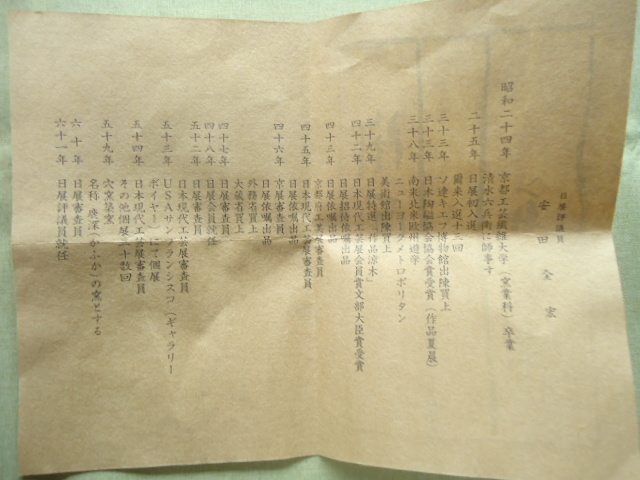 日展評議員
安田全宏
昭和二十四年 京都工芸繊維大学(窯業科)卒業
清水六兵衛に師事す
二十五年 日展初入選
爾来入選十三回
三十三年 ソ連キエフ博物館出陳買上
三十三年 日本陶磁協会協会賞受賞(作品夏晨)
三十八年 南米北米欧州遊学
ニューヨークメトロポリタン
美術館出陳買上
三十九年 日展特選(作品涼木)
四十二年 日本現代工芸展会員賞文部大臣賞受賞
日展招待依嘱出品
四十三年 日展依嘱出品
京都府工美展審査員
四十五年 日本現代工芸展審査員
日展依嘱出品
四十六年 京展審査員
日展依嘱出品
外務省買上
大蔵省買上
四十七年 日展審査員
四十八年 日展会員就任
五十二年 日展審査員
日本現代工芸展審査員
五十三年 USAサンフランシスコ(ギャラリー
ボイヤー)にて個展
五十四年 日本現代工芸展審査員
その他個展三十数回
五十九年 穴窯築窯
名称 庋深(かふか)の窯とする
六十年 日展審査員
六十一年 日展評議員就任